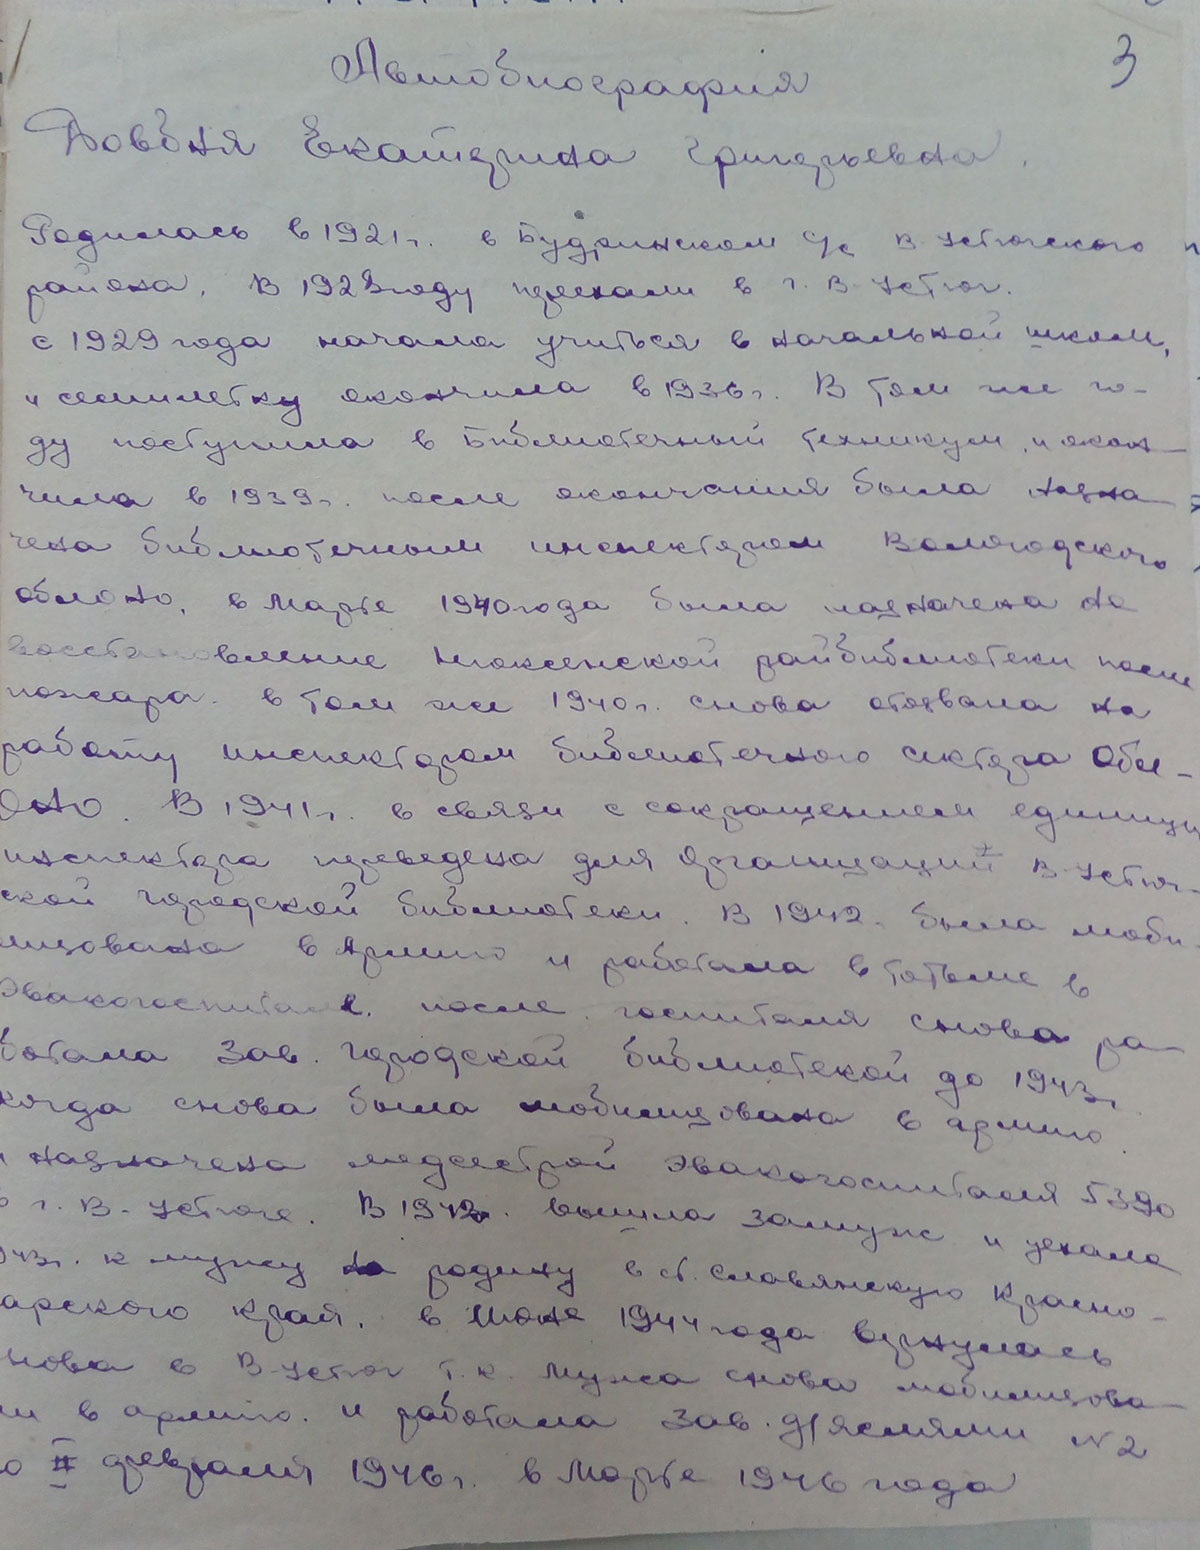 3
Автобиография
Довбня Екатерина Григорьевна.
Родилась в 1921 г. в Будринском с/с В. Устюгского
района. В 1928 году приехали в г. В-Устюг.
с 1929 года начала учиться в начальной школе,
и семилетку окончила в 1936 г. В том же го-
ду поступила в Библиотечный техникум, и окон-
чила в 1939 г. после окончания была назна-
чена библиотечным инспектором Вологодского
облоно, в Марте 1940 года была назначена на
восстановление Нюксенской райбиблиотеки после
пожара. в том же 1940 г. снова отозвана на
работу инспектором библиотечного сектора Обл-
ОНО. В 1941 г. в связи с сокращением единицы
инспектора переведена для организации В-Устюг-
ской городской библиотеки. В 1942. была моби-
лизована в Армию и работала в Тотьме в
Эвакогоспитале. после госпиталя снова ра-
ботала Зав. городской библиотекой до 1943 г.
когда снова была мобилизована в армию
и назначена медсестрой Эвакогоспиталя 5390
в г. В-Устюге. В 1943 г. вышла замуж и уехала
943 г. к мужу на родину в ст. Славянскую Красно-
арского край. в Июне 1944 года вернулась
нова в В-Устюг т.к. мужа снова мобилизова-
ли в армию. и работала Зав. д/яслями N 2
о II февраля 1946 г. в Марте 1946 года